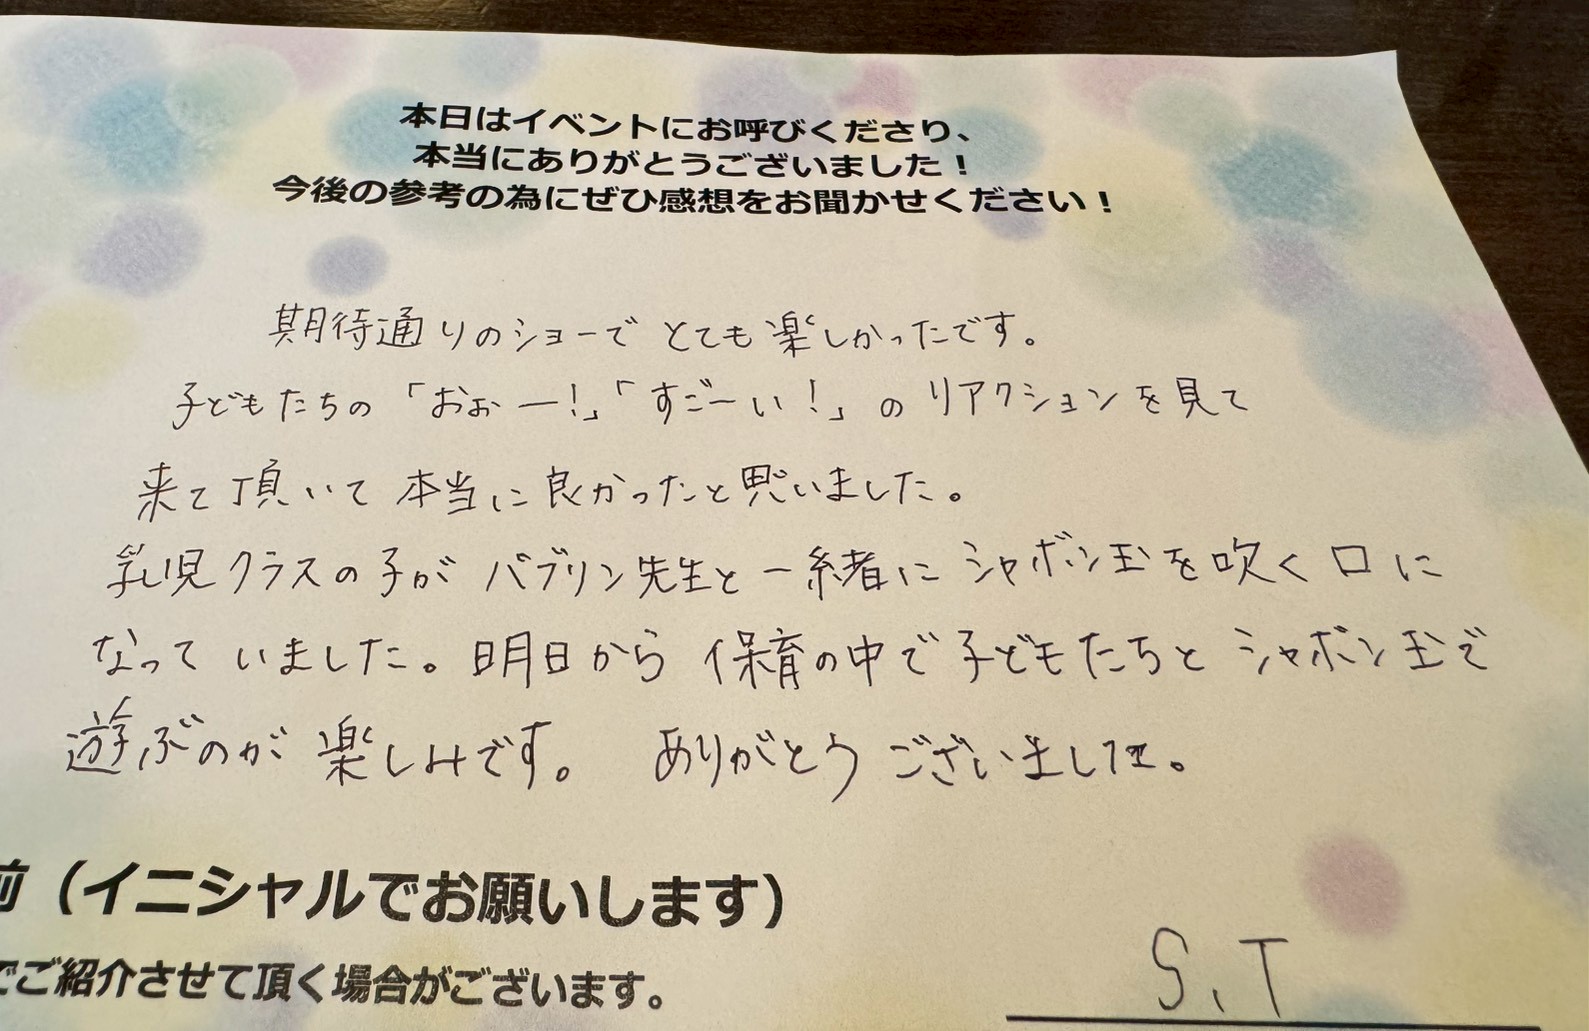 本日はイベントにお呼びくださり、
本当にありがとうございました！
今後の参考の為にぜひ感想をお聞かせください！
期待通りのショーでとても楽しかったです。
子どもたちの「おぉー!」「すごーい!」のリアクションを見て
来て頂いて本当に良かったと思いました。
乳児クラスの子がバブリン先生と一緒にシャボン玉を吹く口に
なっていました。明日から保育の中で子どもたちとシャボン玉で
遊ぶのが楽しみです。ありがとうございました。
前（イニシャルでお願いします）
でご紹介させて頂く場合がございます。
S.T